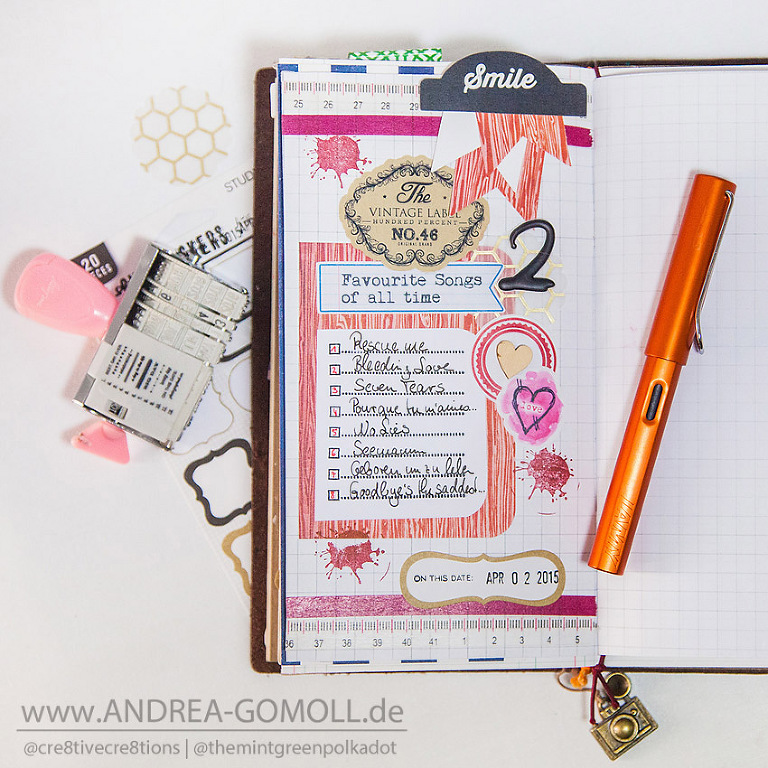 Smile
25 26 27 28 29
The
VINTAGE LABEL
HUNDRED PERCENT
NO.46
ORIGINAL BRAND
2
Favourite Songs
of all time
1 Rescue me
2 Bleeding Love
3 Seven Tears
4 Pourque tu m'aimes...
5 No Lies
6 Seemann
7 Geboren um zu leben
8 Goodbye's the saddest...
love
ON THIS DATE: APR 0 2 2015
36 37 38 39 40 41 1 2 3 4 5
STUD
20
CES
LAMY
www.ANDREA-GOMOLL.de
@cre8tivecre8tions | @themintgreenpolkadot